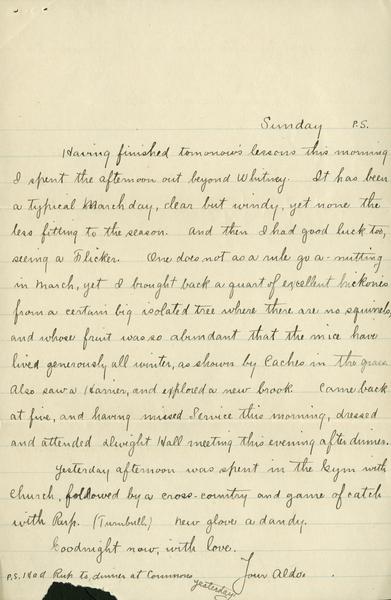 Sunday P.S.
Having finished tomorrow's lessons this morning
I spent the afternoon out beyond Whitney. It has been
a typical March day, clear but windy, yet none the
less fitting to the season. And then I had good luck too,
seeing a Flicker. One does not as a rule go a-nutting
in March, yet I brought back a quart of excellent hickories
from a certain big isolated tree where there are no squirrels,
and whose fruit was so abundant that the mice have
lived generously all winter, as shown by Caches in the grass.
Also saw a Harrier, and explored a new brook. Came back
at five, and having missed Service this morning, dressed
and attended Dwight Hall meeting this evening after dinner.
Yesterday afternoon was spent in the Gym with
Church, followed by a cross-country and game of catch
with Rusp. (Turnbull) New glove a dandy.
Goodnight now, with love.
Your Aldo.
P.S. Had Rusp to dinner at Commons yesterday